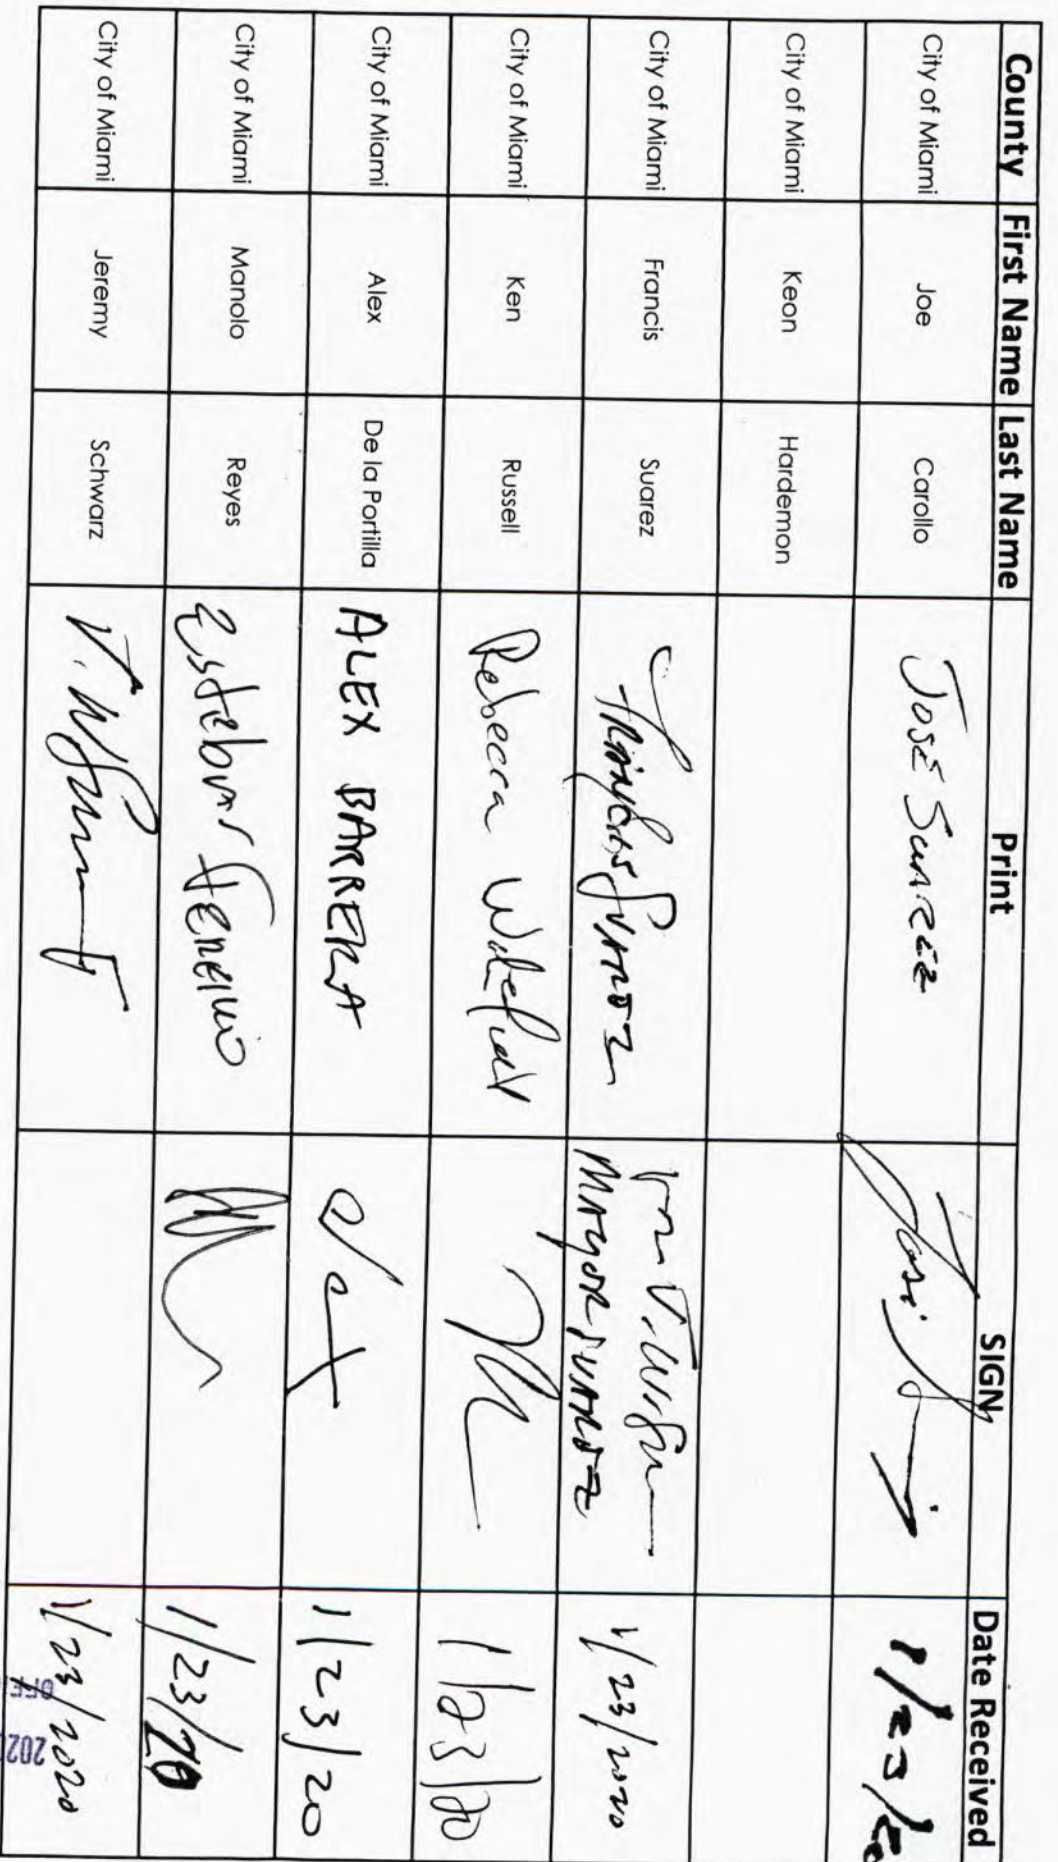 County First Name Last Name Print SIGN Date Received
City of Miami Joe Carollo José Suarez 1/23/20
City of Miami Keon Hardemon
City of Miami Francis Suarez Francis Suarez For MAYOR SUAREZ 1/23/2020
City of Miami Ken Russell Rebecca Wakefield 1/23/20
City of Miami Alex De la Portilla ALEX BARRERA 1/23/20
City of Miami Manolo Reyes Esteban Ferreiro 1/23/20
City of Miami Jeremy Schwarz 1/23/2020
OFF
202